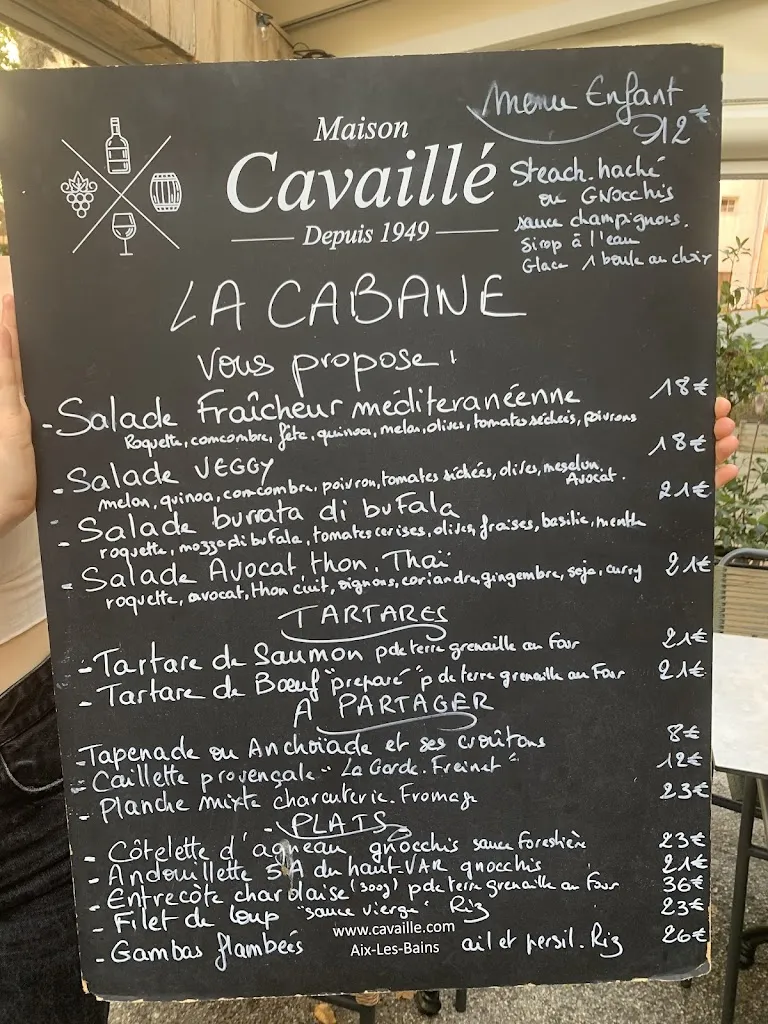 Maison
Cavaillé
Depuis 1949
Menu Enfant
12€
Steach.haché
ou GNocchis
sauce champignons.
Sirop à l'eau
Glace 1 boule au choix
LA CABANE
Vous propose!
-Salade Fraîcheur méditeranéenne 18€
Roquette, comcombre, féta, quinoa, melon, olives, tomates séchées, poivrons
-Salade VEGGY 18€
melon, quinoa, comcombre, poivron, tomates séchées, olives, mesclun,
Avocat.
-Salade burrata di buFala 21€
roquette, mozza di buFala, tomates cerises, olives, fraises, basilic, menthe
-Salade Avocat thon. Thaï 21€
roquette, avocat, thon cuit, oignons, coriandre, gingembre, soja, curry
TARTARES
-Tartare de Saumon p de terre grenaille au Four 21€
-Tartare de Bœuf "préparé" p de terre grenaille au Four 21€
A PARTAGER
-Tapenade ou Anchoïade et ses croûtons 8€
-Caillette provençale "La Garde.Freinet" 12€
-Planche mixte charcuterie.Fromage 23€
-PLATS
-Côtelette d'agneau gnocchis sauce Forestière 23€
-Andouillette 5A du haut-VAR gnocchis 21€
-Entrecôte charolaise (300g) p de terre grenaille au Four 36€
-Filet de loup "sauce vierge" Riz 23€
www.cavaille.com
-Gambas flambées ail et persil. Riz 26€
Aix-Les-Bains